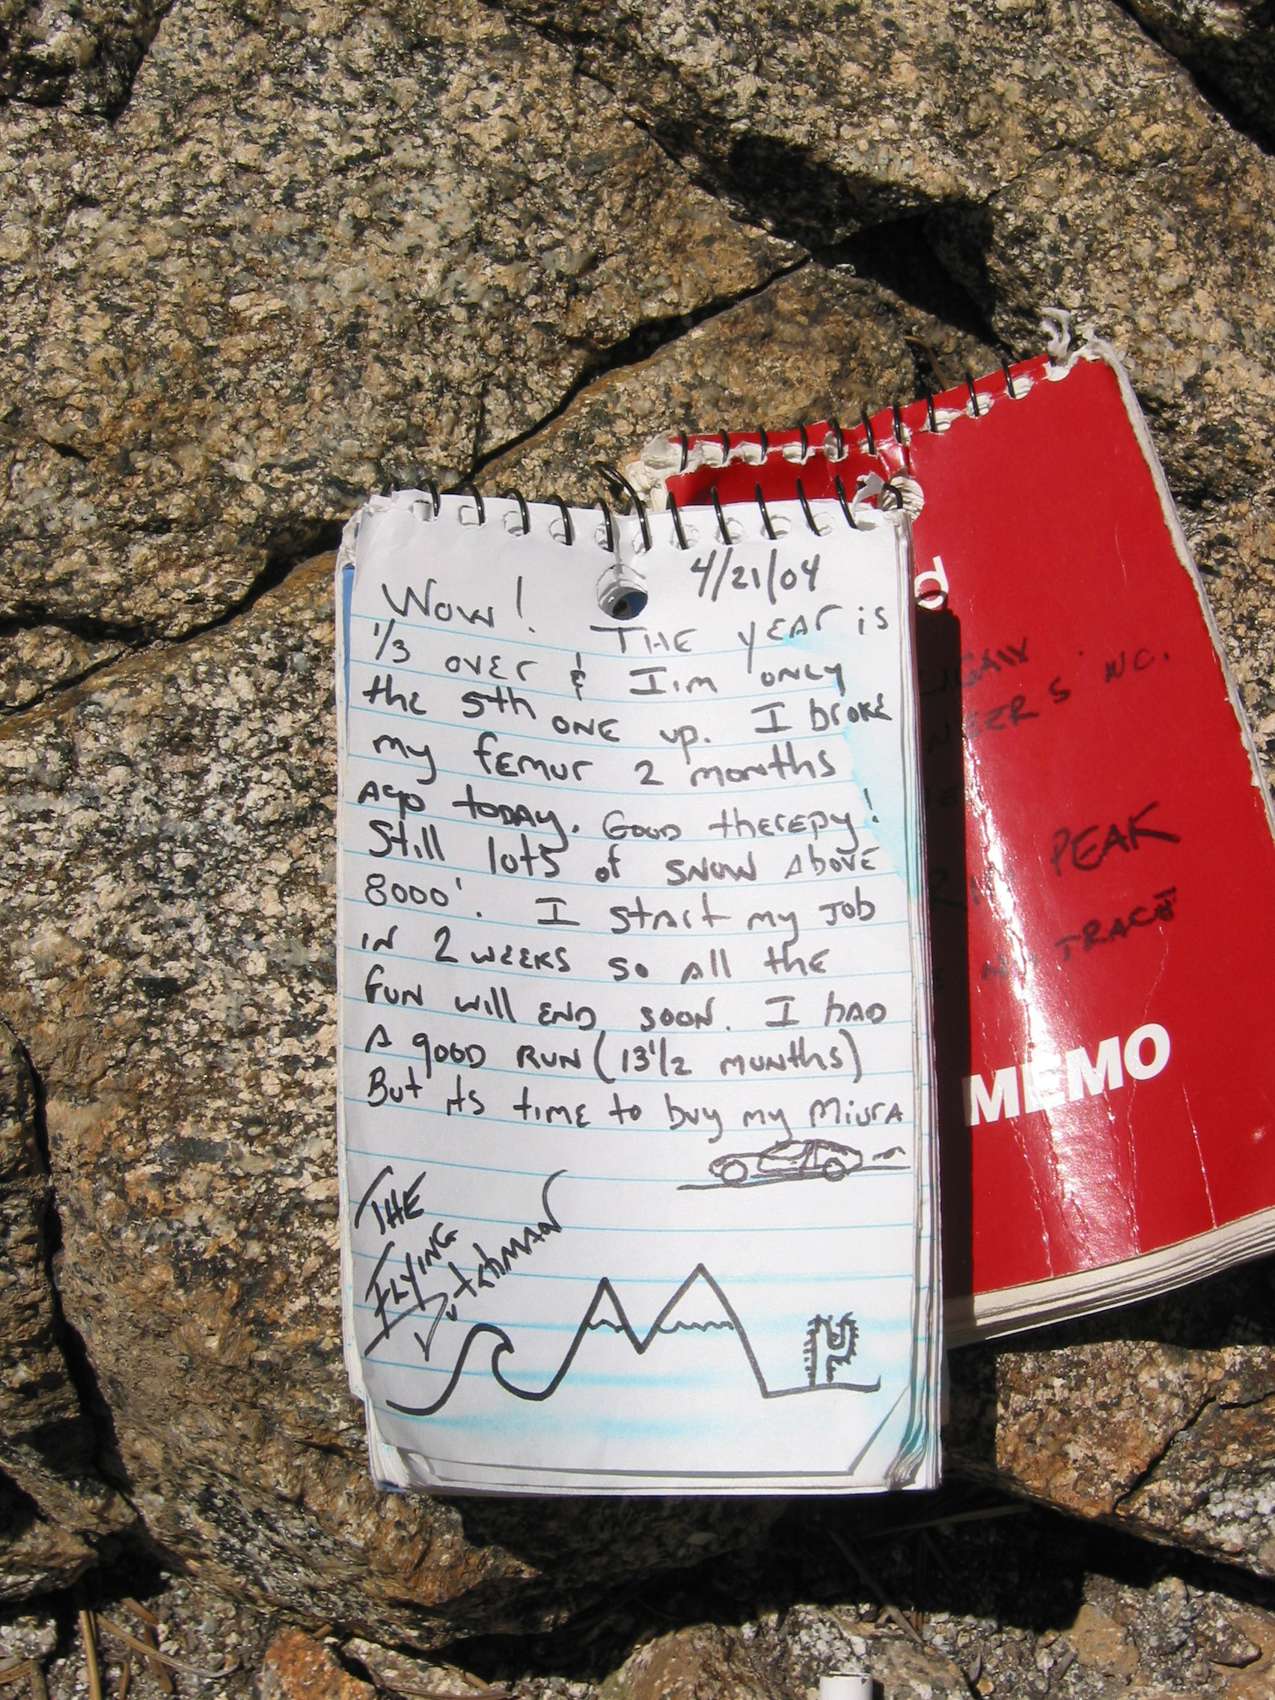 4/21/04
Wow! THE YEAr is
1/3 over & I'm only
the 5th one up. I broke
my femur 2 months
ago today. Good therepy!
Still lots of snow above
8000'. I start my job
in 2 weeks so all the
fun will end soon. I had
A good run (13 1/2 munths)
But its time to buy my Miura
THE
FLYING
Dutchman
d
INC.
PEAK
MEMO